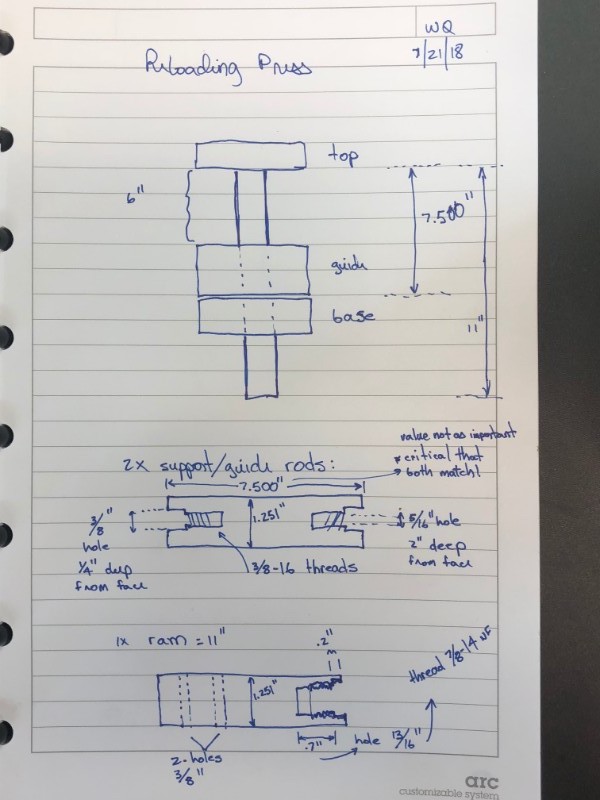 WQ
7/21/18
Reloading Press
top
6"
7.500"
guide
base
11"
value not as important
* critical that
both match!
2x support/guide rods:
7.500"
3/8" hole
1/4" deep
from face
1.251"
5/16" hole
2" deep
from face
3/8-16 threads
1x ram = 11"
.2"
1.251"
thread 7/8-14 NF
.7"
hole 13/16"
2-holes
3/8"
arc
customizable system